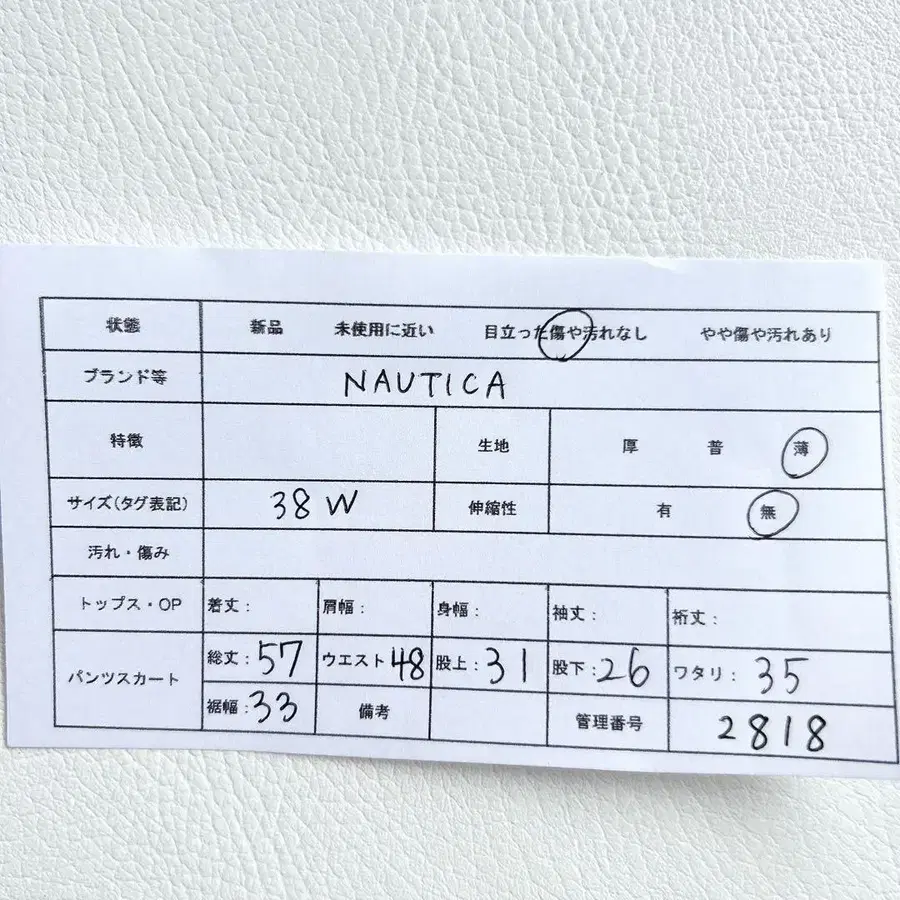 状態 新品 未使用に近い 目立った傷や汚れなし やや傷や汚れあり
ブランド等 NAUTICA
特徴 生地 厚 普 薄
サイズ(タグ表記) 38 W 伸縮性 有 無
汚れ・傷み
トップス・OP 着丈: 肩幅: 身幅: 袖丈: 裄丈:
パンツスカート 総丈:57 ウエスト48 股上:31 股下:26 ワタリ:35
裾幅:33 備考 管理番号 2818